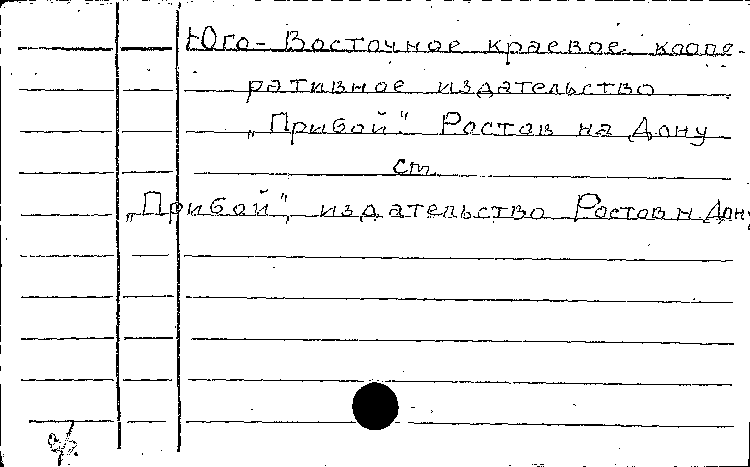 Юго-Восточное краевое коопе-
ративное издательство
„Прибой". Ростов на Дону
см.
„Прибой", издательство Ростов н Дону